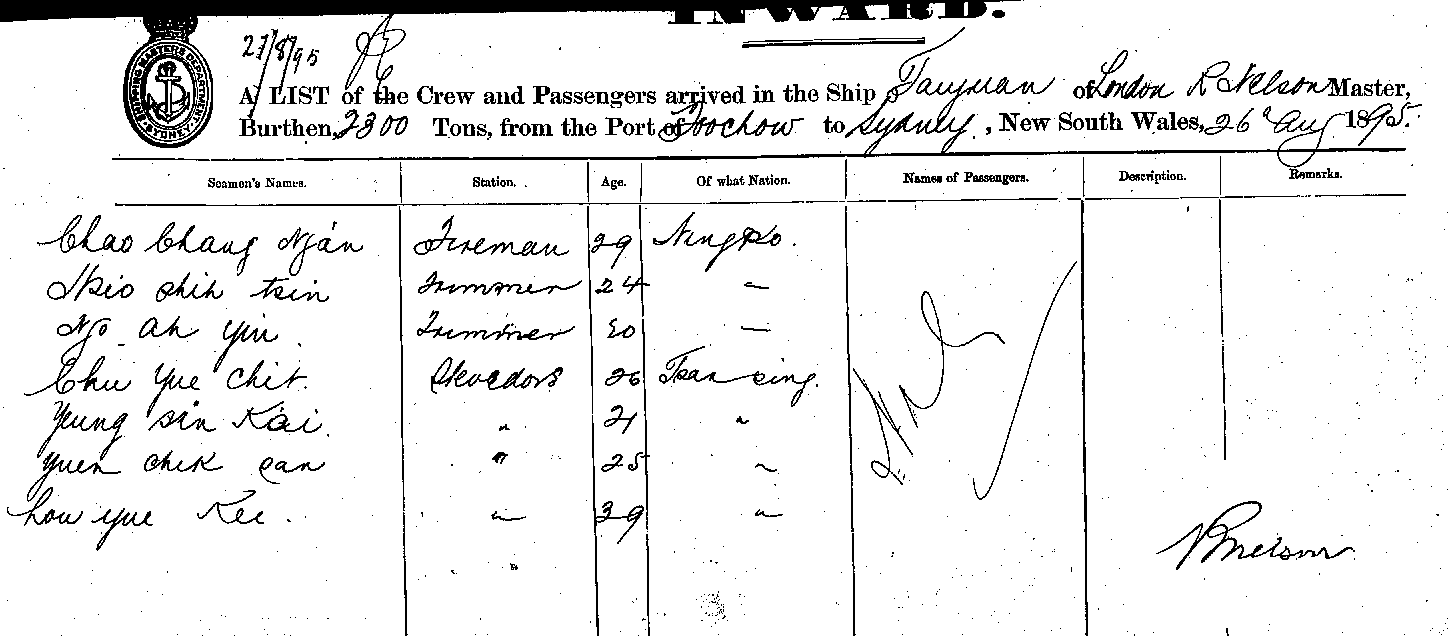 INWARD.
27/8/95
SHIPPING MASTERS DEPARTMENT SYDNEY
A LIST of the Crew and Passengers arrived in the Ship Taiyuan of London R Nelson Master,
Burthen, 2300 Tons, from the Port of Foochow to Sydney, New South Wales, 26 Aug 1895.
Seamen's Names. Station. Age. Of what Nation. Names of Passengers. Description. Remarks.
Chao Chang Fireman 29 Ningpo.
chih tsin Trimmer 24 "
Ah Yin Trimmer "
Chu Yue Chit. 26
Yeung Sin Kai. " 21 "
Yuen Chik " 25 "
Yue Kee. " 39 "
"
RNelson